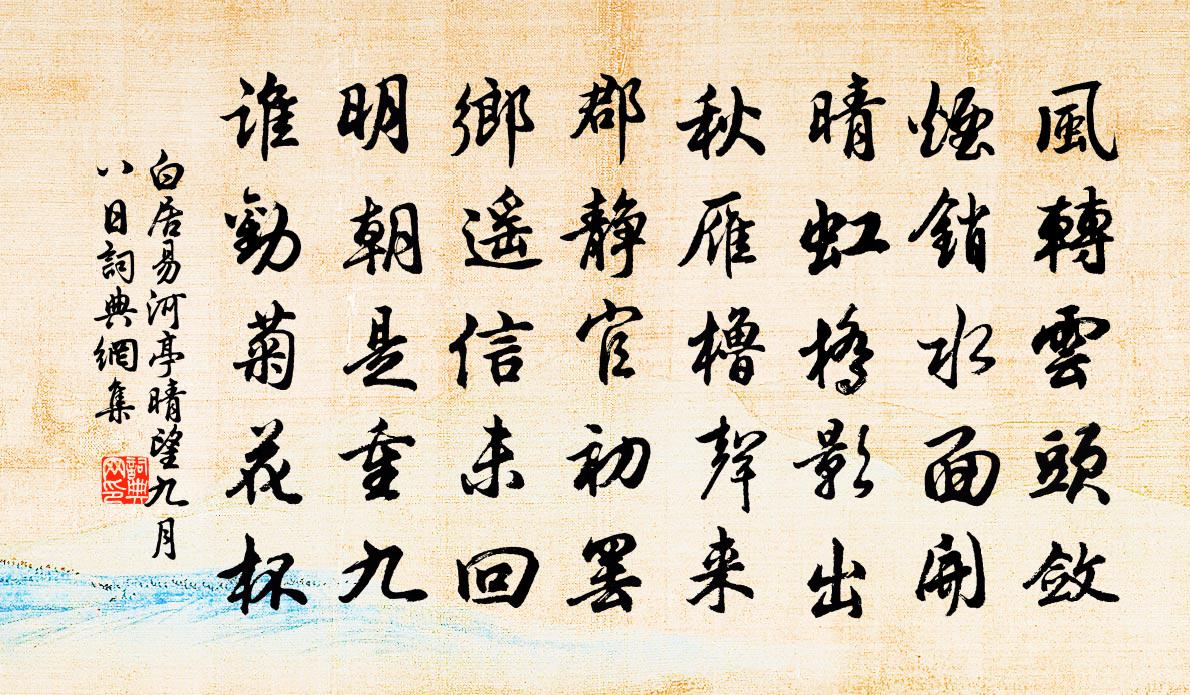 風轉雲頭斂
煙銷水面開
晴虹橋影出
秋雁櫓聲来
郡靜官初罷
鄉遥信未回
明朝是重九
誰勸菊花杯
白居易河亭晴望九月
八日詞典網集
詞典